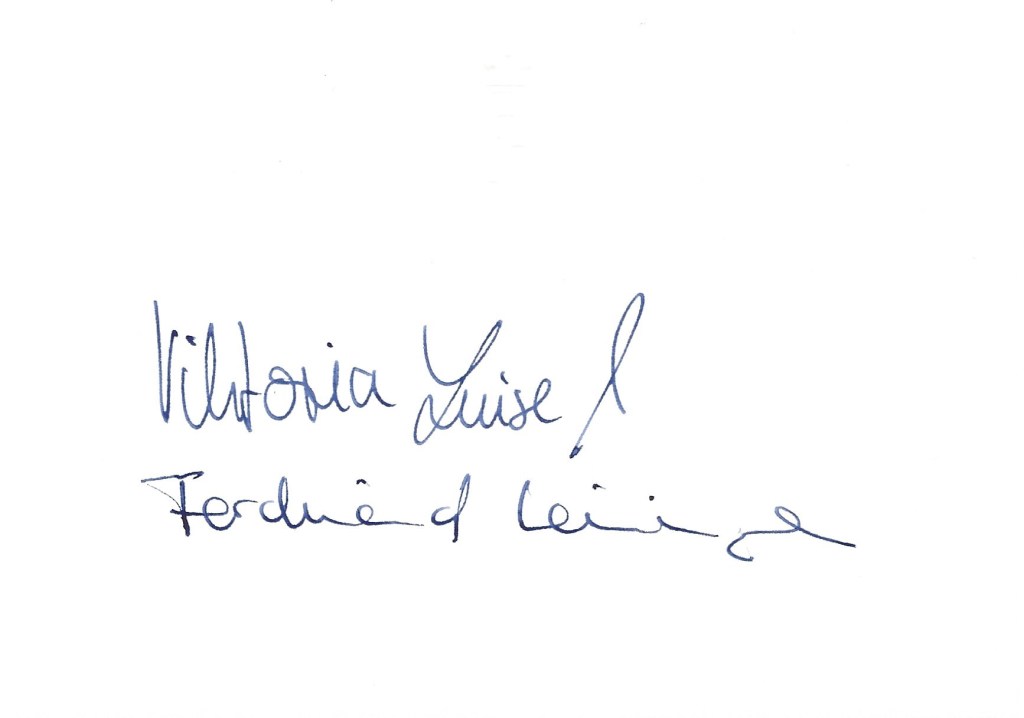 Viktoria Luise
Ferdinand Leiningen